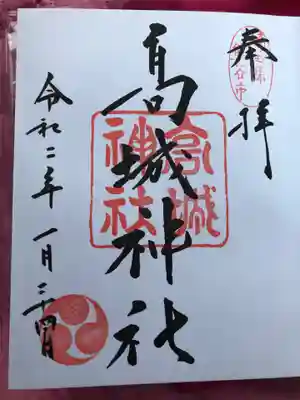 奉拝
高城神社
高城
神社
令和二年一月三十四日